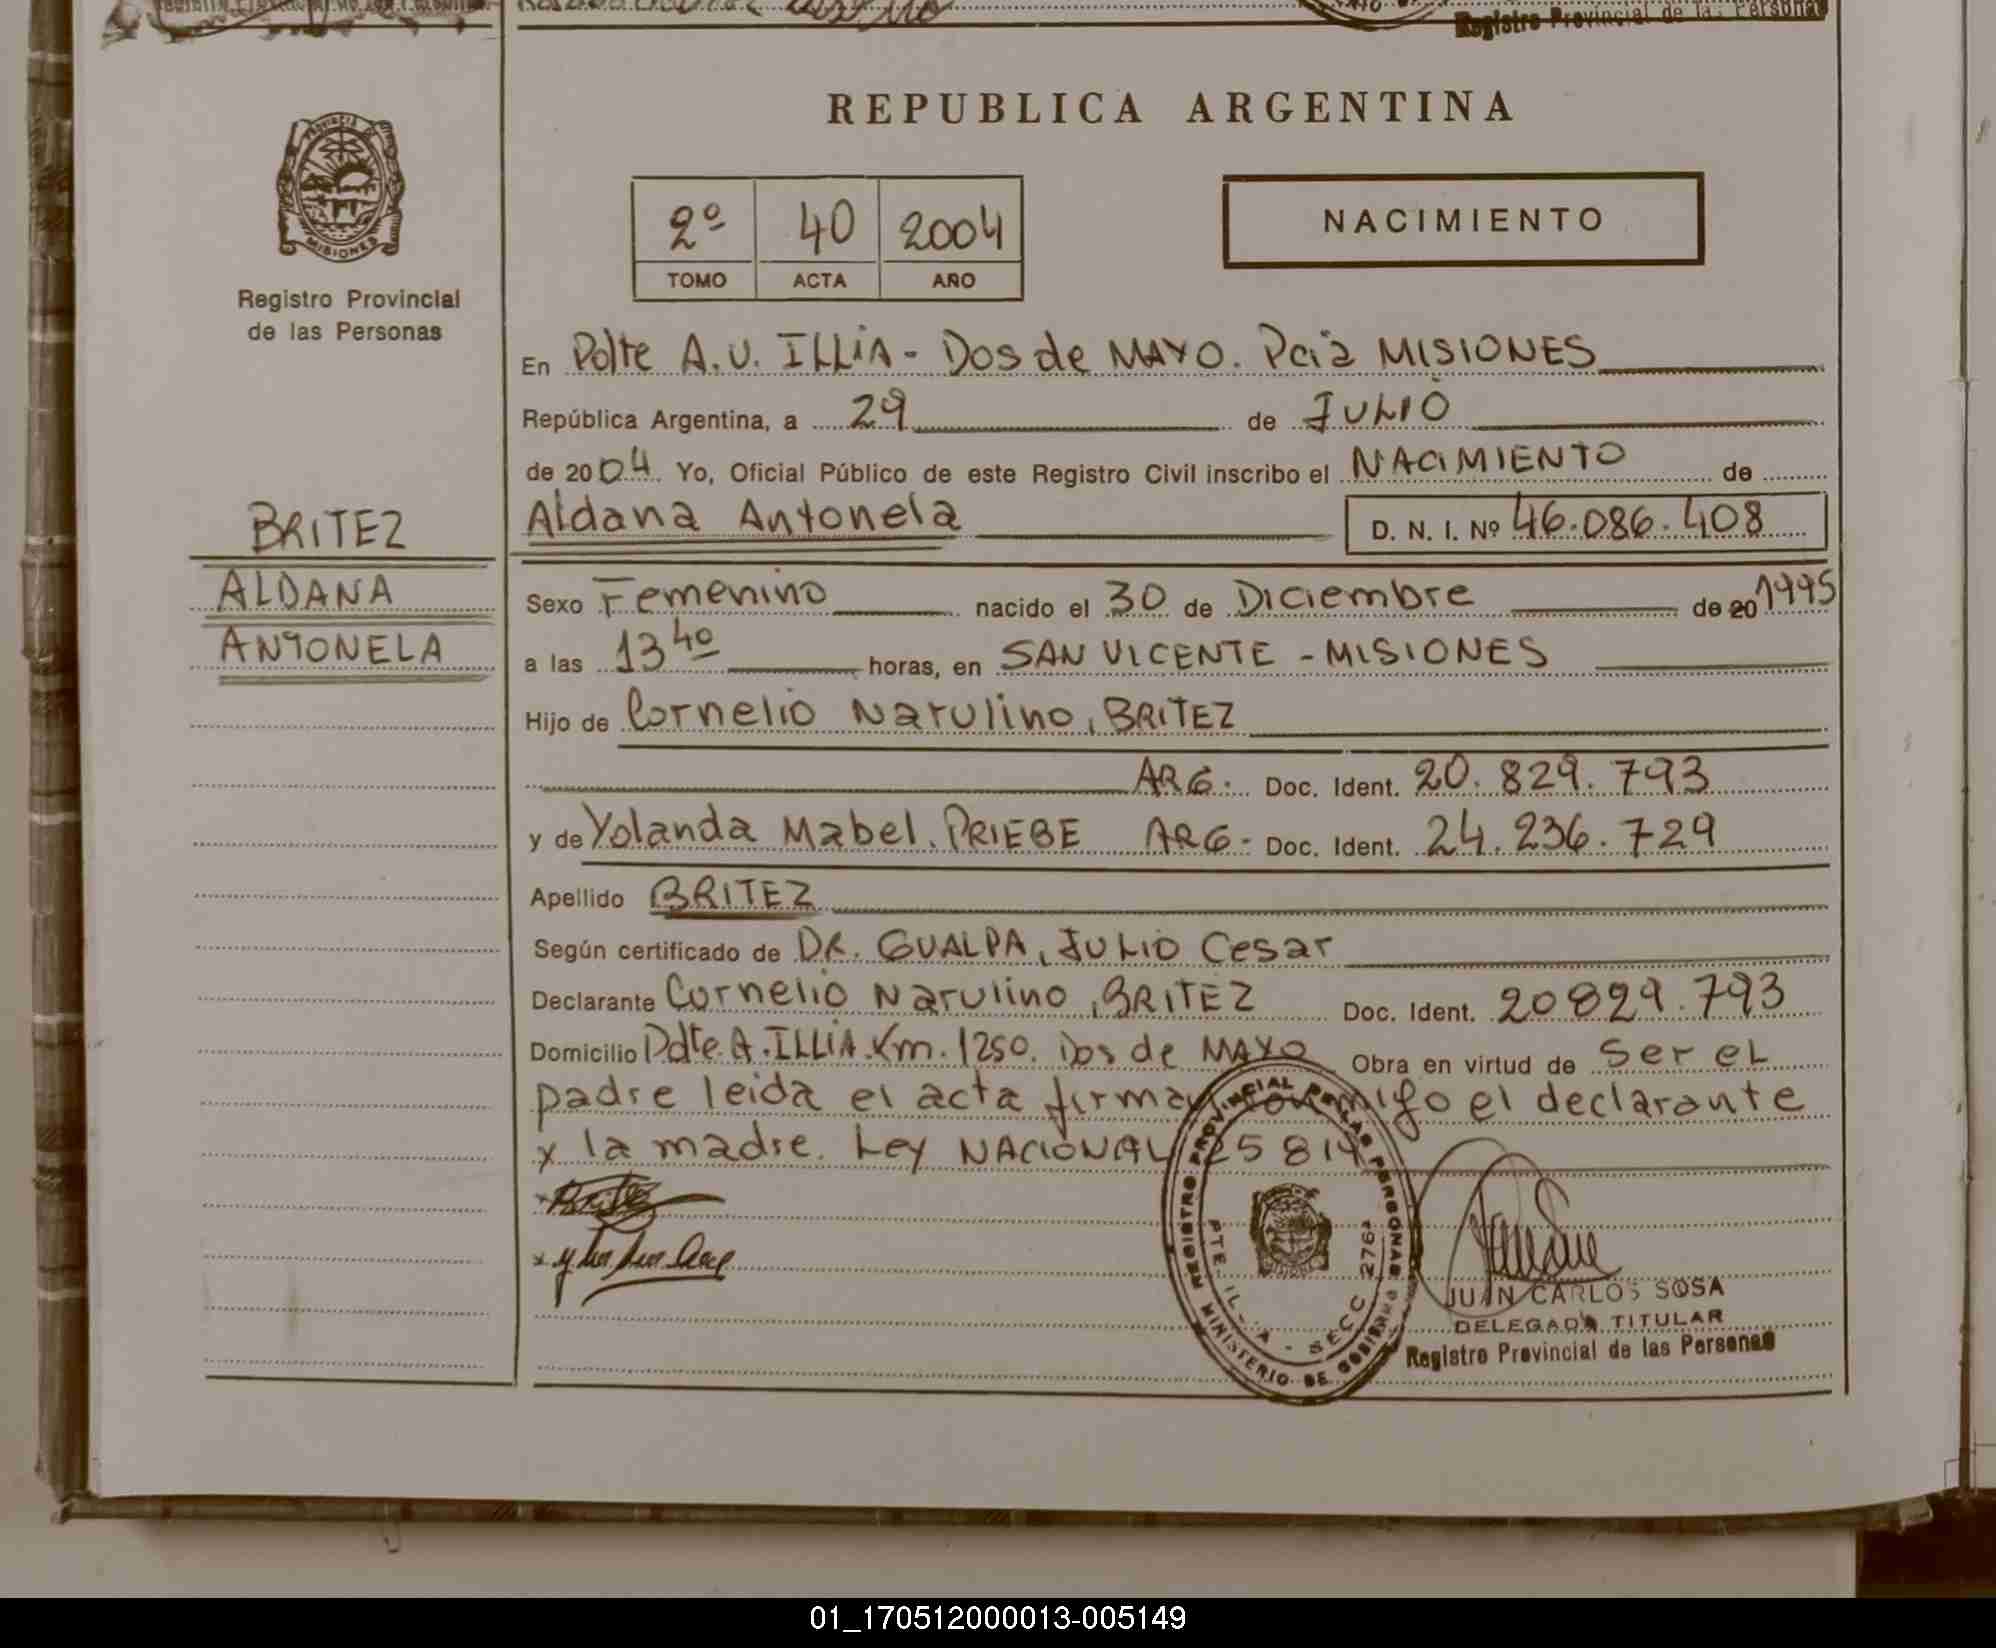 Registro Provincial de las Personas
REPUBLICA ARGENTINA
PROVINCIA DE
MISIONES
Registro Provincial
de las Personas
2º 40 2004
TOMO ACTA AÑO
NACIMIENTO
BRITEZ
ALDANA
ANTONELA
En Pdte A.U. ILLIA - Dos de MAYO. Pcia MISIONES
República Argentina, a 29 de JULIO
de 2004 Yo, Oficial Público de este Registro Civil inscribo el NACIMIENTO de
Aldana Antonela D. N. I. Nº 46.086.408
Sexo Femenino nacido el 30 de Diciembre de 20 1995
a las 13 40 horas, en SAN VICENTE - MISIONES
Hijo de Cornelio Narulino, BRITEZ
ARG. Doc. Ident. 20.829.793
y de Yolanda Mabel. PRIEBE ARG- Doc. Ident. 24.236.729
Apellido BRITEZ
Según certificado de DR. GUALPA, JULIO Cesar
Declarante Cornelio Narulino, BRITEZ Doc. Ident. 20829.793
Domicilio Pdte. A. ILLIA. Km. 1250. Dos de MAYO Obra en virtud de Ser el
padre leida el acta firman conmigo el declarante
y la madre. Ley NACIONAL 25814
REGISTRO PROVINCIAL DE LAS PERSONAS
MINISTERIO DE GOBIERNO
PTE. IL A - SECC. 2767
JUAN CARLOS SOSA
DELEGADO TITULAR
Registro Provincial de las Personas
01_170512000013-005149